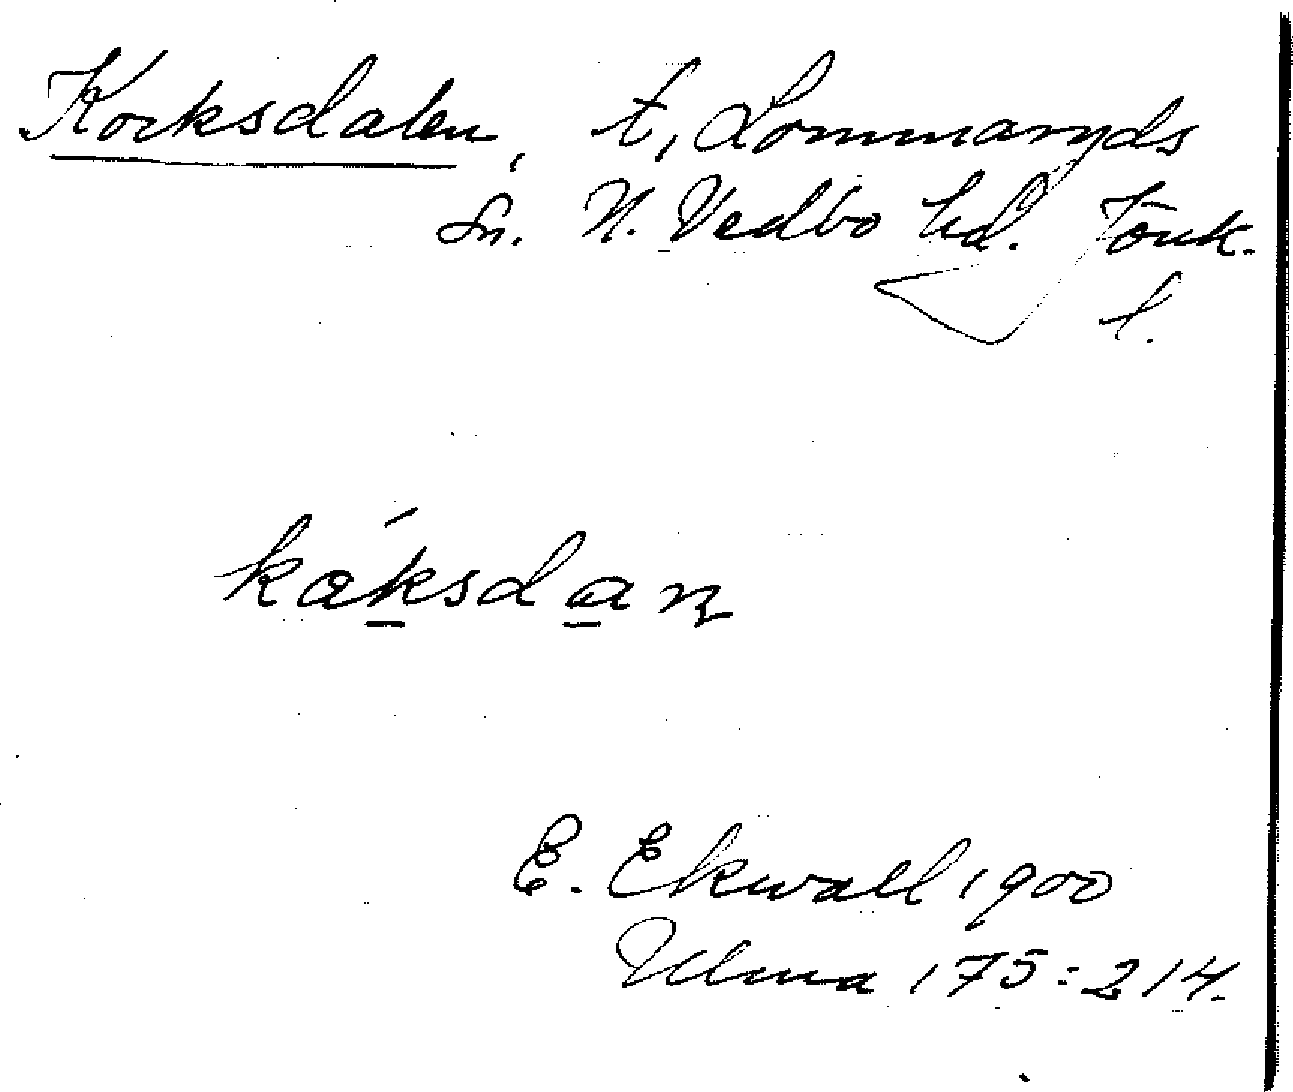 Korksdalen, t, Lommaryds
Sn. N. Vedbo hd. Jönk.
l.
káksdan
E. Ekwall 1900
Ulma 175:214.